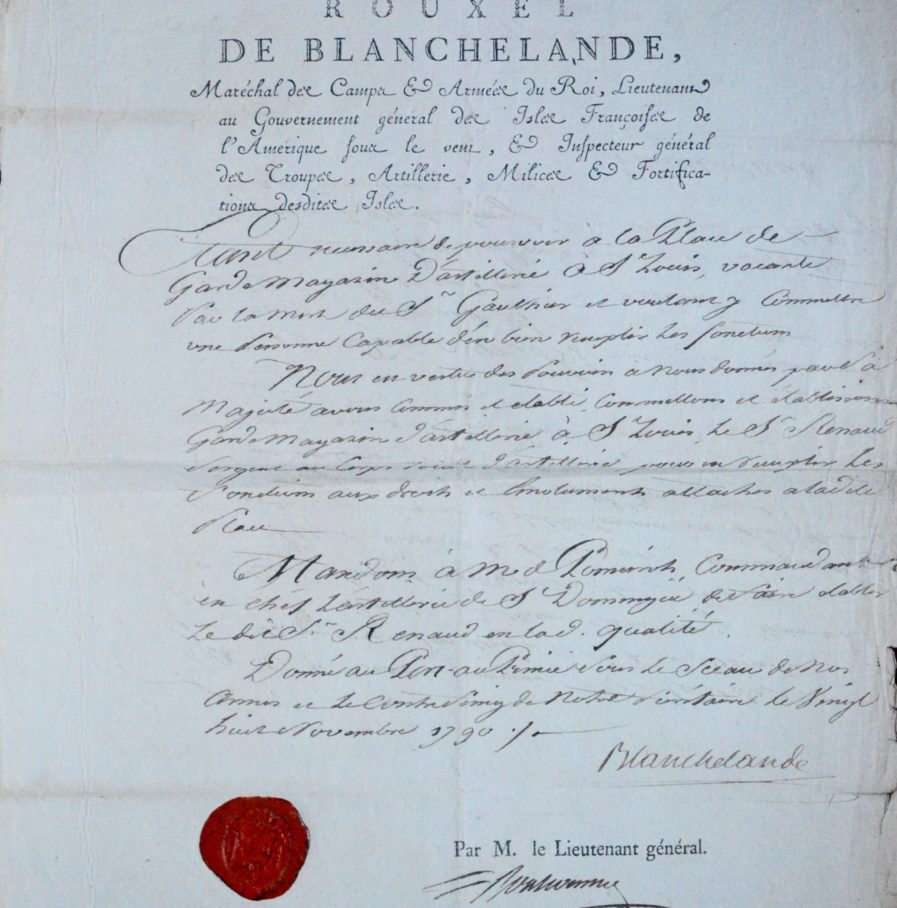 ROUXEL
DE BLANCHELANDE,
Maréchal des Camps & Armées du Roi, Lieutenant
au Gouvernement général des Isles Françoises de
l'Amérique sous le vent, & Inspecteur général
des Troupes, Artillerie, Milices & Fortifica-
tions desdites Isles.
Etant necessaire de pourvoir à la Place de
Garde Magazin D'artillerie à St Louis, vacante
Par la mort du Sr Gaulthier et voulant y Commettre
une Personne Capable d'en bien remplir Les fonctions
Nous en vertu des Pouvoirs à Nous donnés par Sa
Majesté avons Commis et établi, Commettons et établissons
Garde Magazin d'artillerie à St Louis, Le Sr Renaud
Sergent au Corps royal d'artillerie, pour en remplir Les
Fonctions aux droits et Emolumens attachés a ladite
Place
Mandons à Mr de Commandant
en chef L'artillerie de St Domingue de faire établir
Le dit Sr Renaud en lad. qualité.
Donné au Port-au-Prince Sous Le Sceau de Nos
Armes et Le Contre Seing de Notre Secrétaire Le Vingt
huit Novembre 1790 ./.
Blanchelande
Par M. le Lieutenant général.